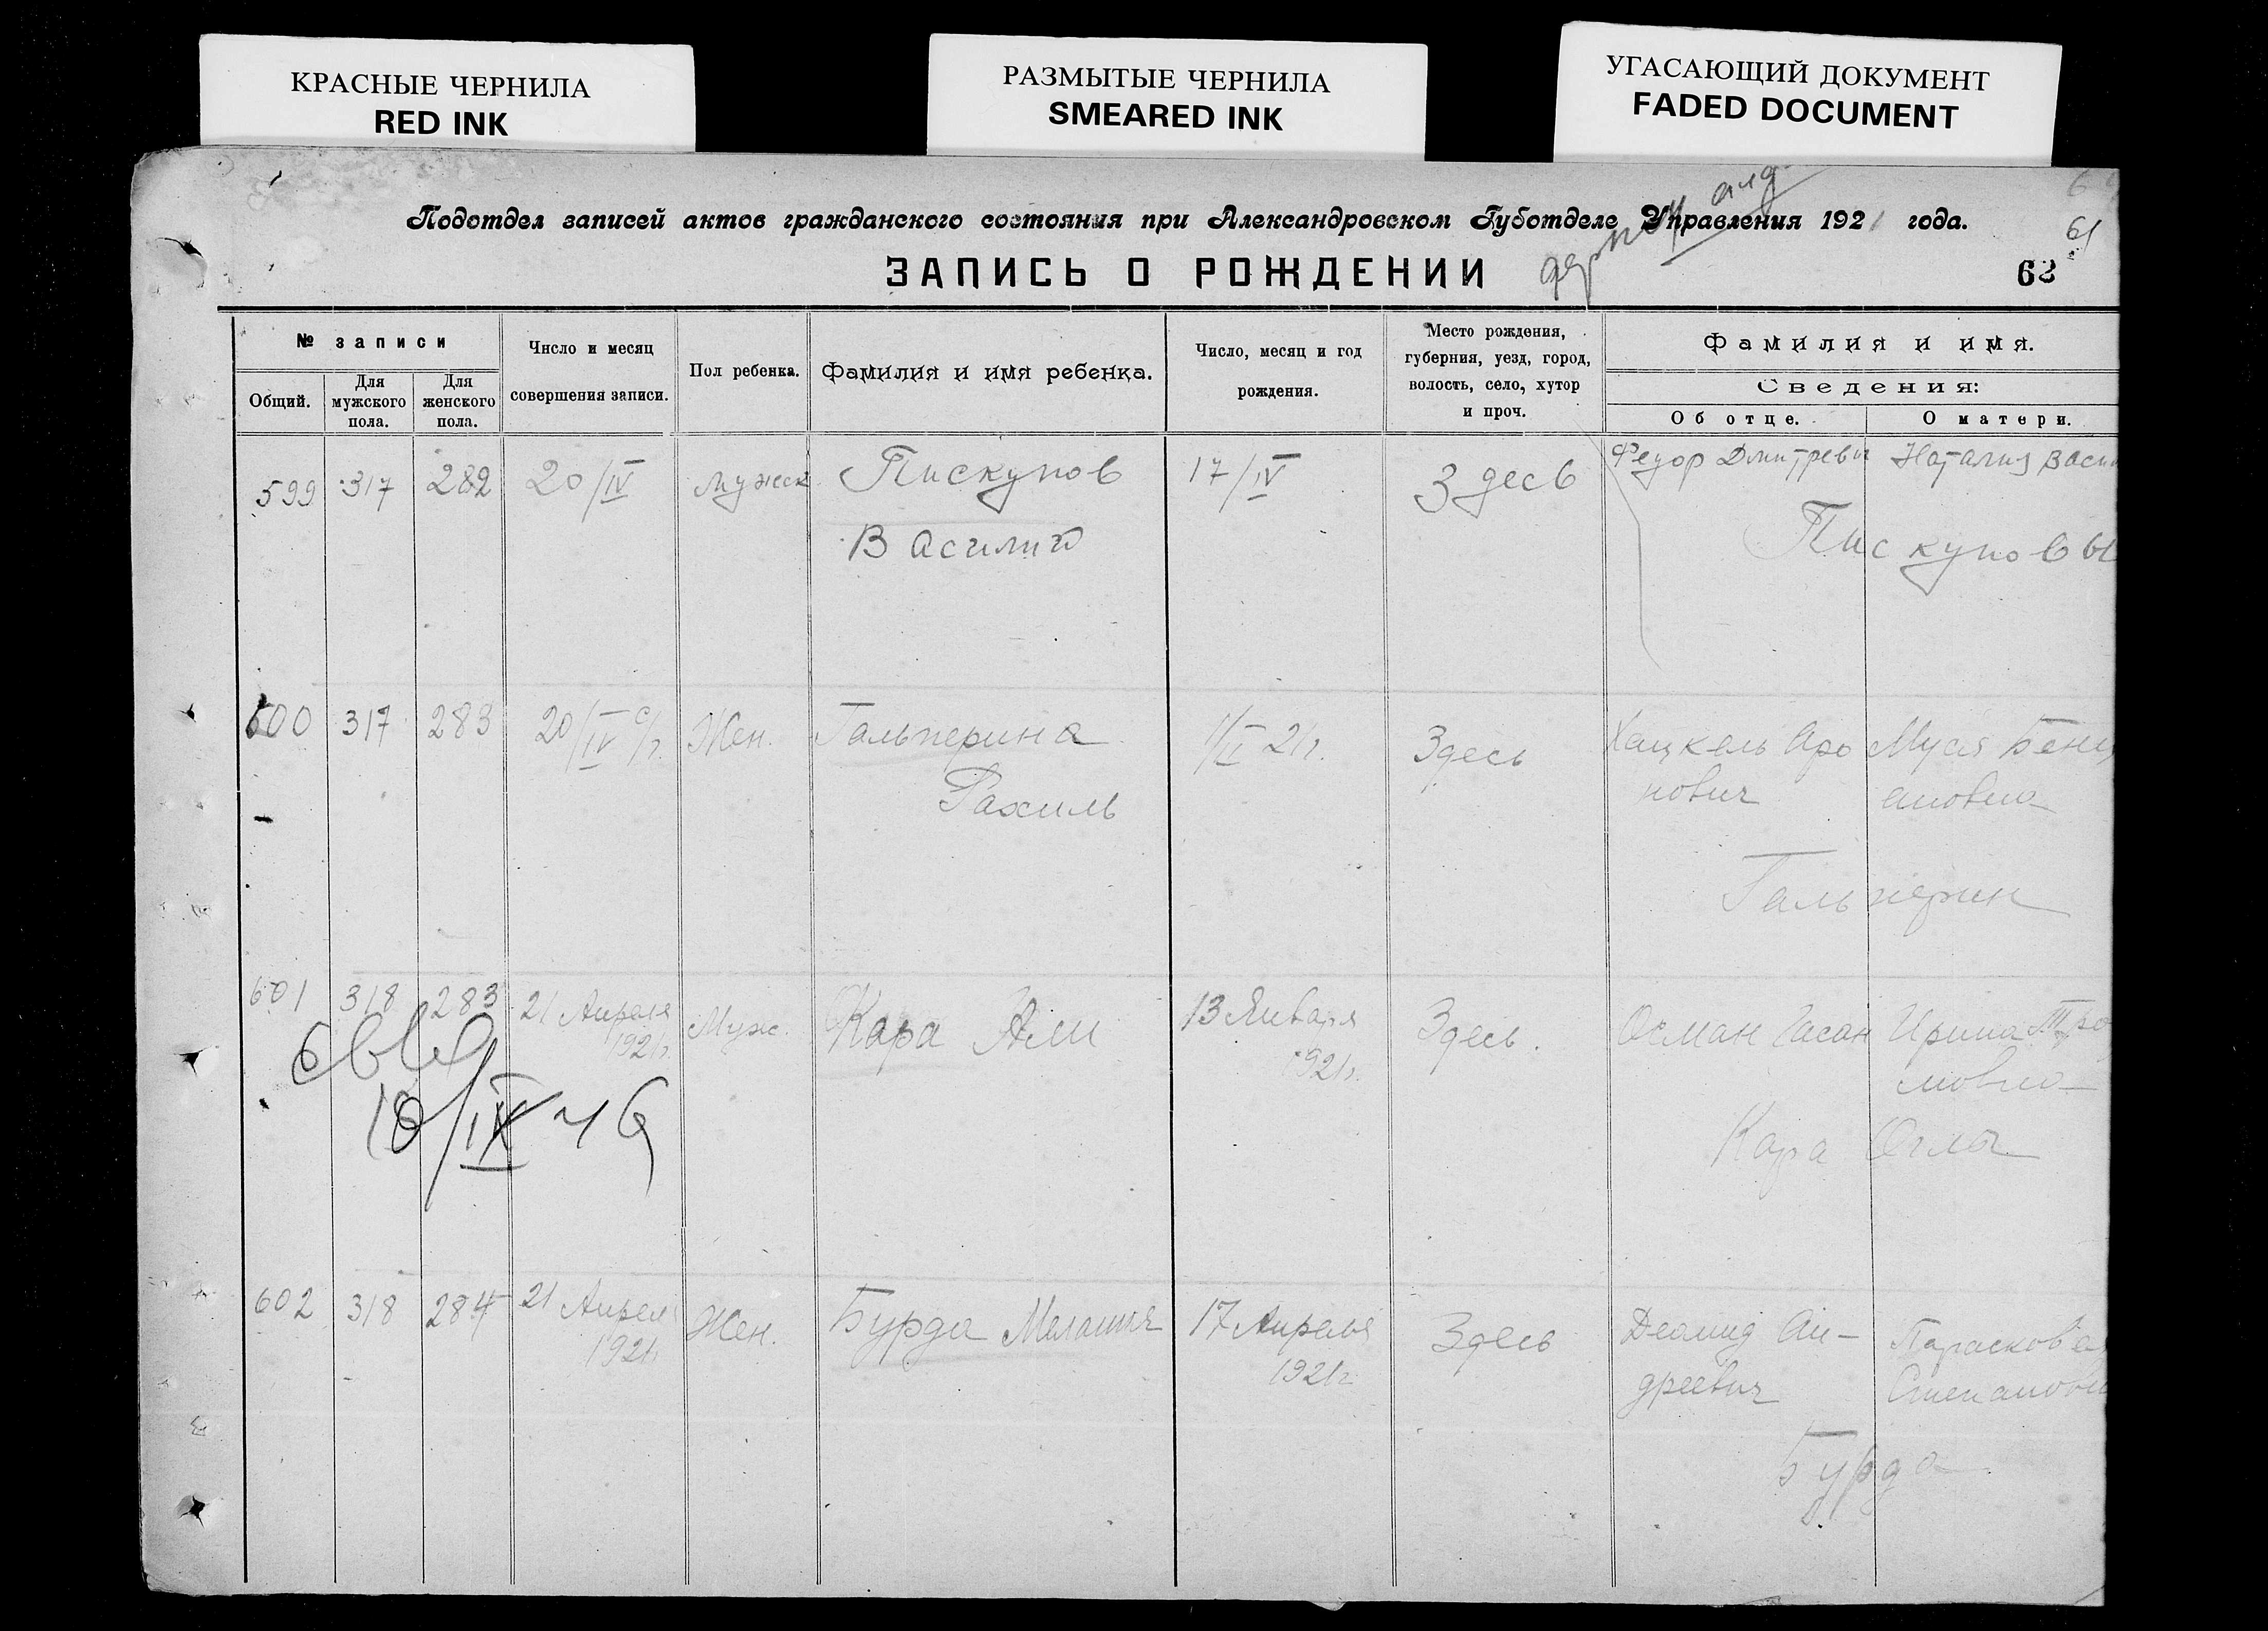 КРАСНЫЕ ЧЕРНИЛА
RED INK
РАЗМЫТЫЕ ЧЕРНИЛА
SMEARED INK
УГАСАЮЩИЙ ДОКУМЕНТ
FADED DOCUMENT
Подотдел записей актов гражданского состояния при Александровском Губотделе Управления 1921 года.
61
ЗАПИСЬ О РОЖДЕНИИ
63
№ записи
Общий.
Для мужского пола.
Для женского пола.
Число и месяц
совершения записи.
Пол ребенка.
Фамилия и имя ребенка.
Число, месяц и год
рождения.
Место рождения,
губерния, уезд, город,
волость, село, хутор
и проч.
Фамилия и имя.
Сведения:
Об отце.
О матери.
599 317 282 20/IV мужск Пискунов 17/IV Здесь Федор Дмитревич Наталия Васи
Василий
Пискуновы
600 317 283 20/IV с/г. Жен. Гальперина 1/II 21г. Здесь Хацкель Аро Муся Бени
Рахиль
нович
ановна
Гальперин
601 318 283 21 Апреля Муж. Кара Али 13 Января Здесь. Осман Гасан Ирина
1921г.
921г.
мовна
18/IX 46
Кара Оглы
602 318 284 21 Апреля Жен. Бурда Мелания 17 Апреля Здесь Деомид Ан- Парасковея
1921г.
1921г
дреевич
Степановн
Бурда